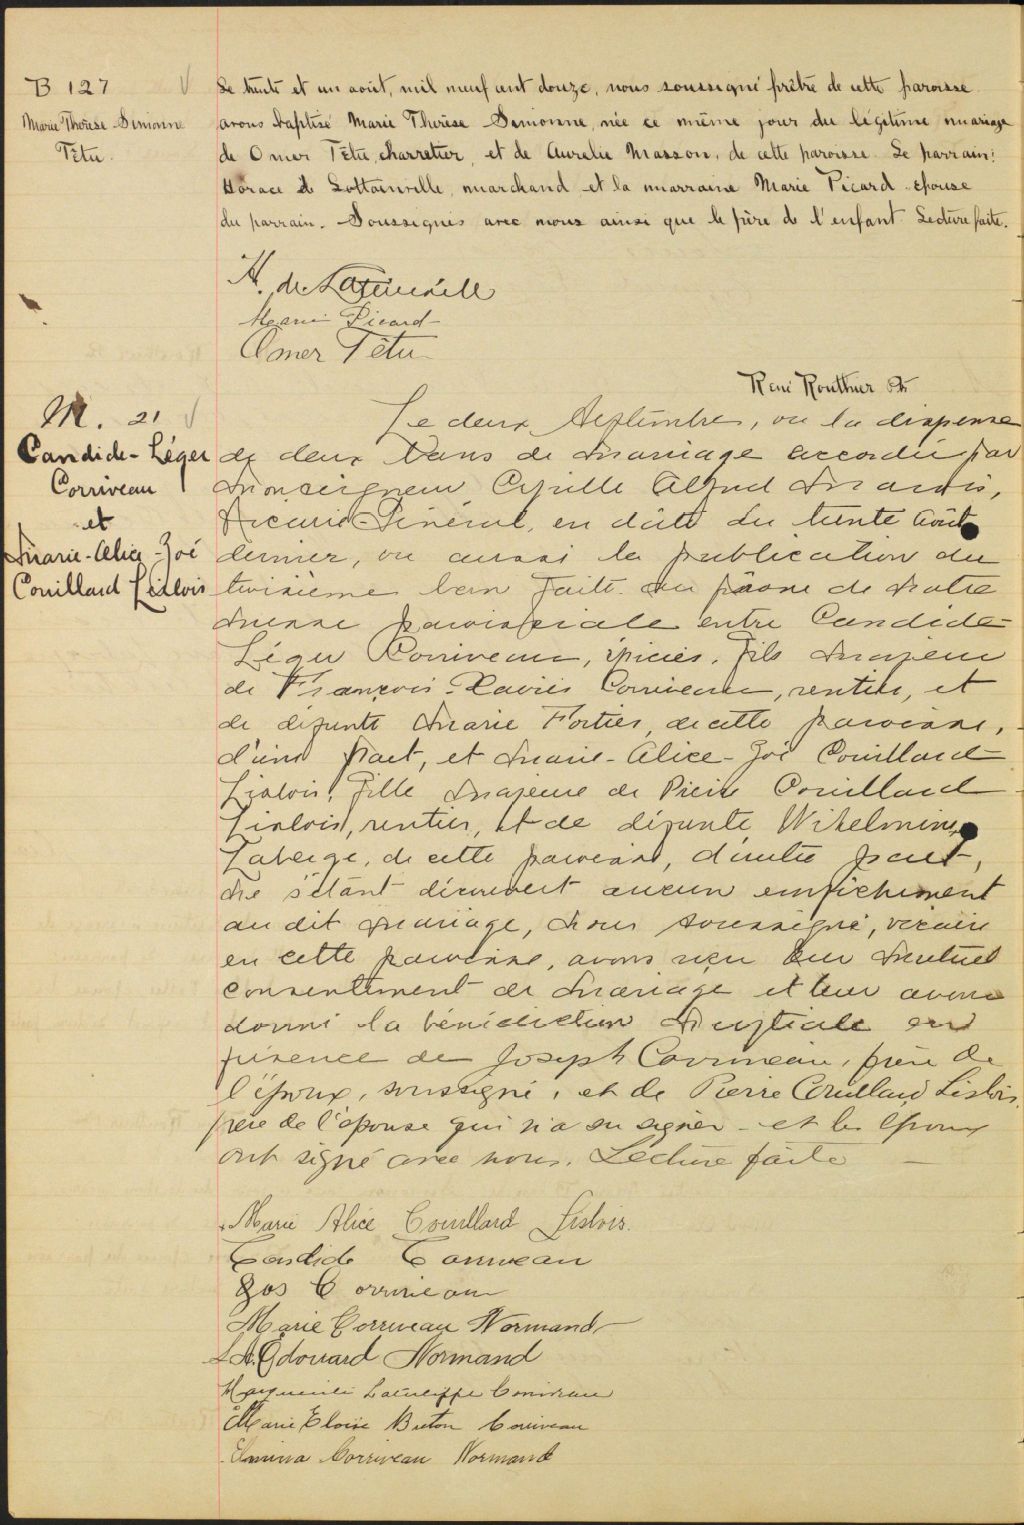 B 127
Marie Thérèse Simonne
Têtu.
Le trente et un août, mil neuf cent douze, nous soussigné prêtre de cette paroisse
avons baptisé Marie Thérèse Simonne, née ce même jour du légitime mariage
de Omer Têtu, charretier, et de Aurelie Masson, de cette paroisse. Le parrain:
Horace de Lottainville, marchand et la marraine Marie Picard épouse
du parrain. Soussignés avec nous ainsi que le père de l'enfant. Lecture faite.
H. de
Marie Picard
Omer Têtu
René Routhier Ptr
M. 21
Candide-Léger
Corriveau
et
Marie-Alice-Zoé
Couillard Lislois
Le deux Septembre, vu la dispense
de deux bans de mariage accordée par
Monseigneur Cyrille Alfred Marois,
Vicaire-Général, en date du trente août
dernier, vu aussi la publication du
troisième ban faite au prône de notre
messe paroissiale entre Candide
Léger Corriveau, épicier, fils majeur
de François-Xavier Corriveau, rentier, et
de défunte Marie Fortier, de cette paroisse,
d'une part, et Marie-Alice-Zoé Couillard
Lislois, fille majeure de Pierre Couillard
Lislois, rentier, et de défunte Wilhelmine
Laberge, de cette paroisse, d'autre part,
ne s'étant découvert aucun empêchement
au dit mariage, nous soussigné, vicaire
en cette paroisse, avons reçu leur mutuel
consentement de mariage et leur avons
donné la bénédiction nuptiale en
présence de Joseph Corriveau, frère de
l'époux, soussigné, et de Pierre Couillard Lislois,
père de l'épouse qui n'a su signer - et les époux
ont signé avec nous. Lecture faite
Marie Alice Couillard Lislois.
Candide Corriveau
Jos Corriveau
Marie Corriveau Normand
Edouard Normand
Marguerite Latulippe Corriveau
Marie Eloïse Breton Corriveau
Elmina Corriveau Normand